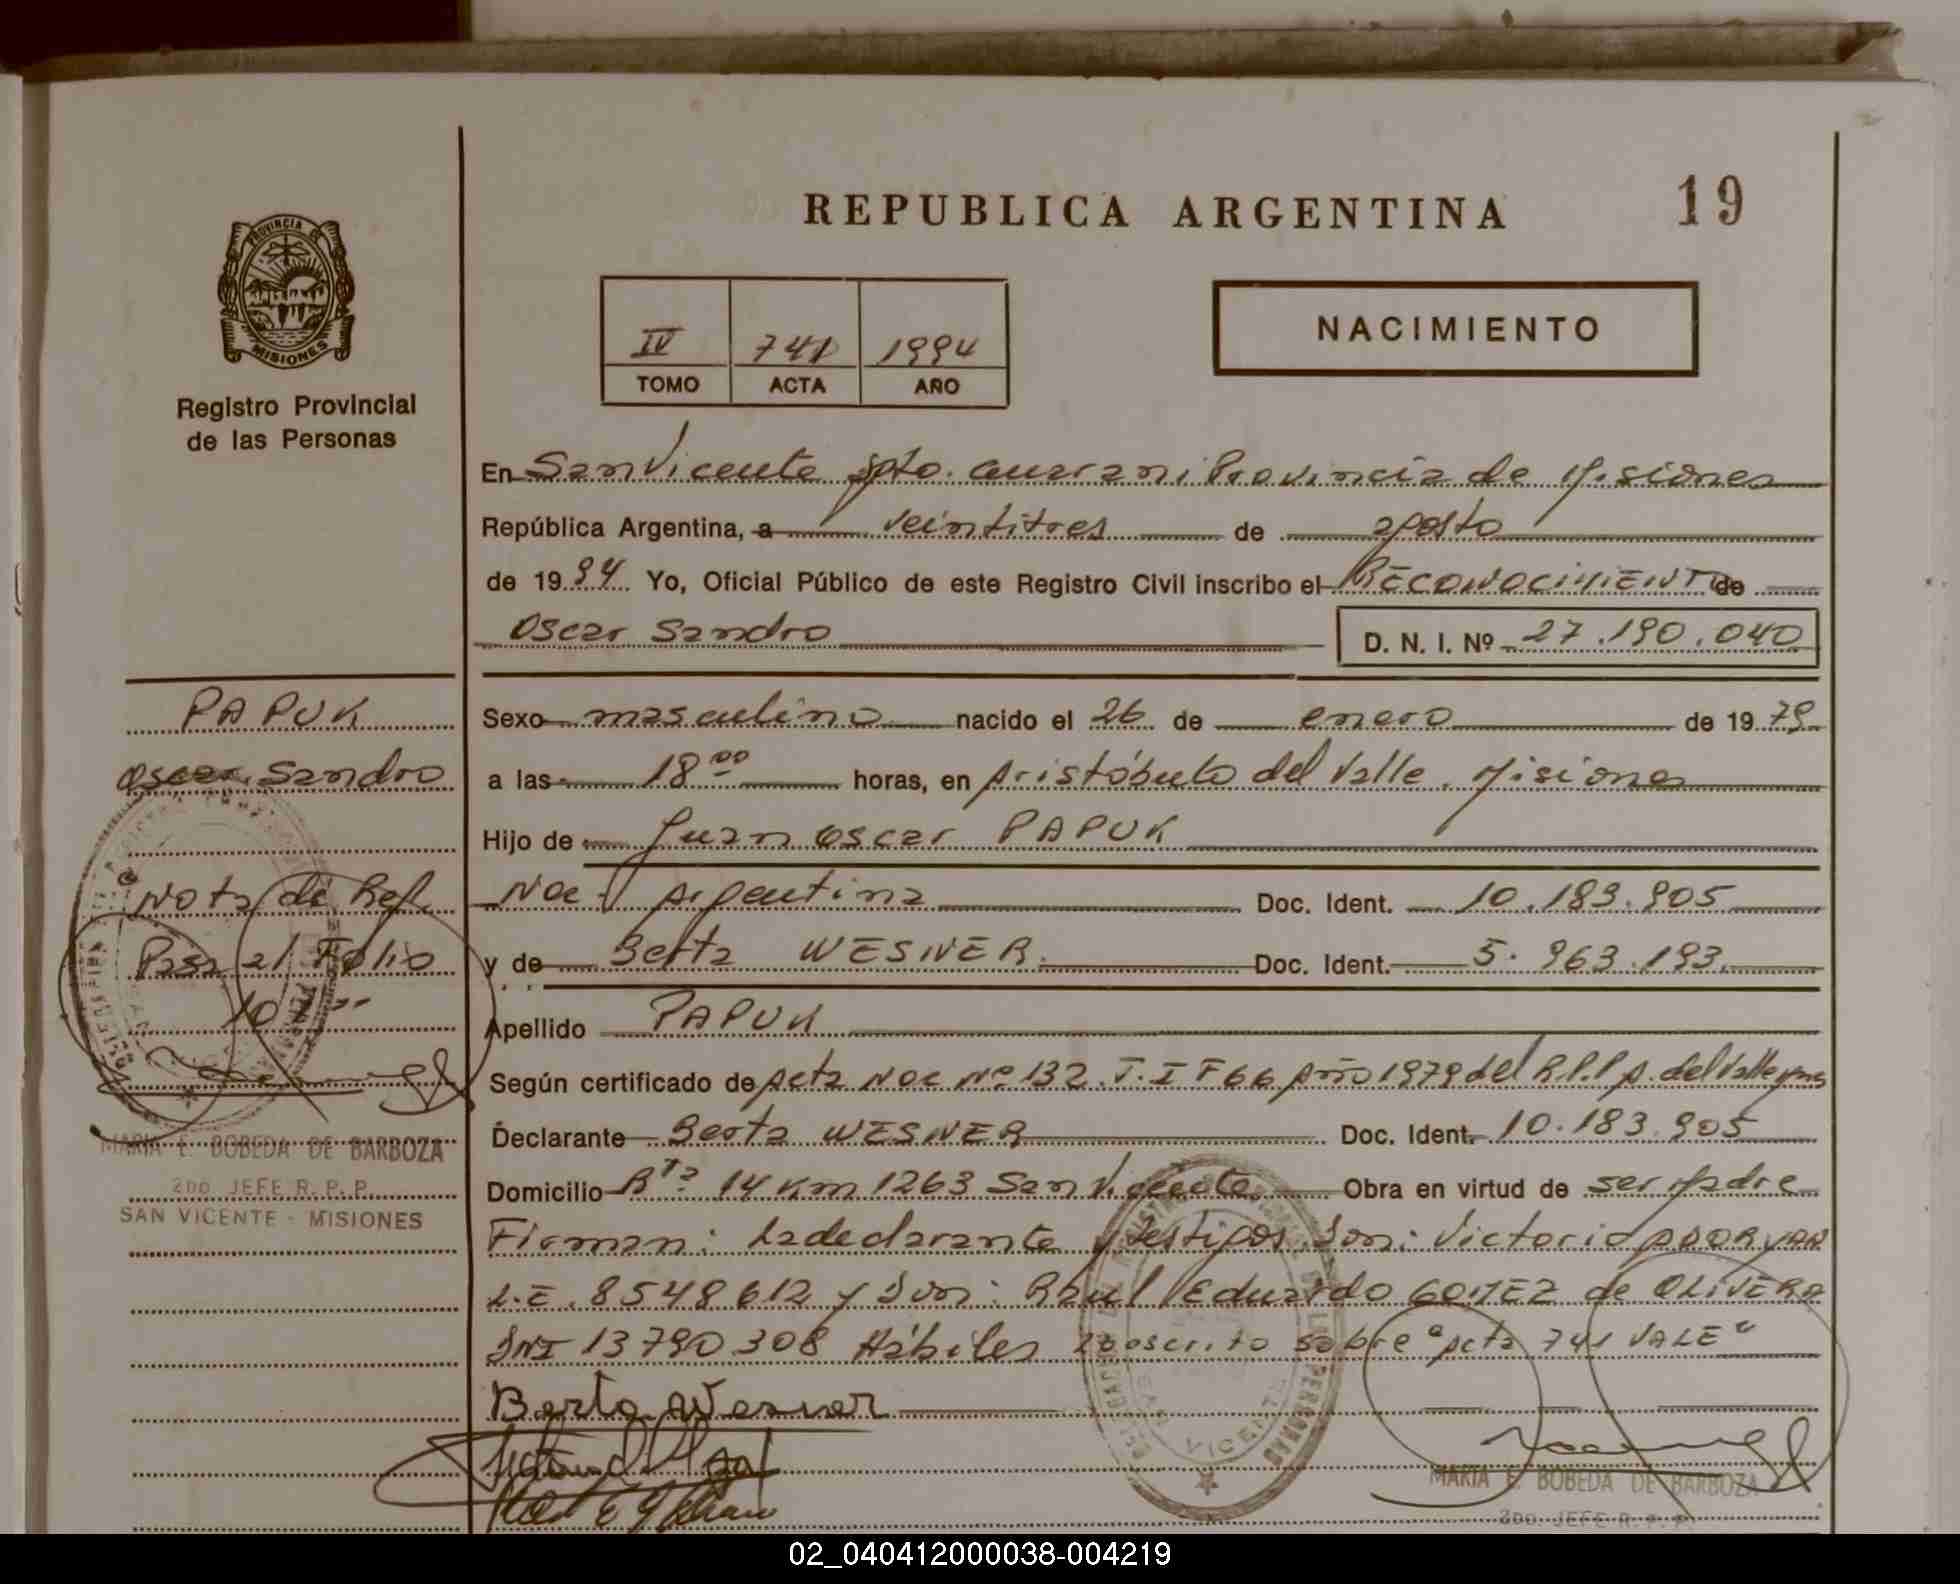 REPUBLICA ARGENTINA
19
PROVINCIA DE
MISIONES
Registro Provincial
de las Personas
IV 741 1994
TOMO ACTA AÑO
NACIMIENTO
En San Vicente Dpto. Guarani Provincia de Misiones
República Argentina, a veintitres de agosto
de 1994 Yo, Oficial Público de este Registro Civil inscribo el RECONOCIMIENTO de
Oscar Sandro D. N. I. Nº 27.190.040
PAPUK
Oscar Sandro
Sexo masculino nacido el 26 de enero de 1979
a las 18 00 horas, en Aristóbulo del Valle, Misiones
Hijo de Juan Oscar PAPUK
Nac. Argentina Doc. Ident. 10.183.905
y de Berta WESNER Doc. Ident. 5.963.193
Apellido PAPUK
Nota de Ref.
Pasa al Folio
101
MARIA E. BOBEDA DE BARBOZA
2DO. JEFE R. P. P.
SAN VICENTE - MISIONES
Según certificado de Acta Nac Nº 132 T. I F 66 Año 1979 del R.P.P A. del Valle
Declarante Berta WESNER Doc. Ident. 10.183.905
Domicilio Rta 14 Km 1263 San Vicente Obra en virtud de ser madre
Firman: La declarante y testigos Don: Victorio
L.E. 8548612 y Don: Raúl Eduardo GOMEZ de OLIVERA
DNI 13790308 Hábiles sobre "Acta 741 VALE"
Berta Wesner
SAN VICENTE
MARIA E. BOBEDA DE BARBOZA
2DO. JEFE R. P. P.
02_040412000038-004219